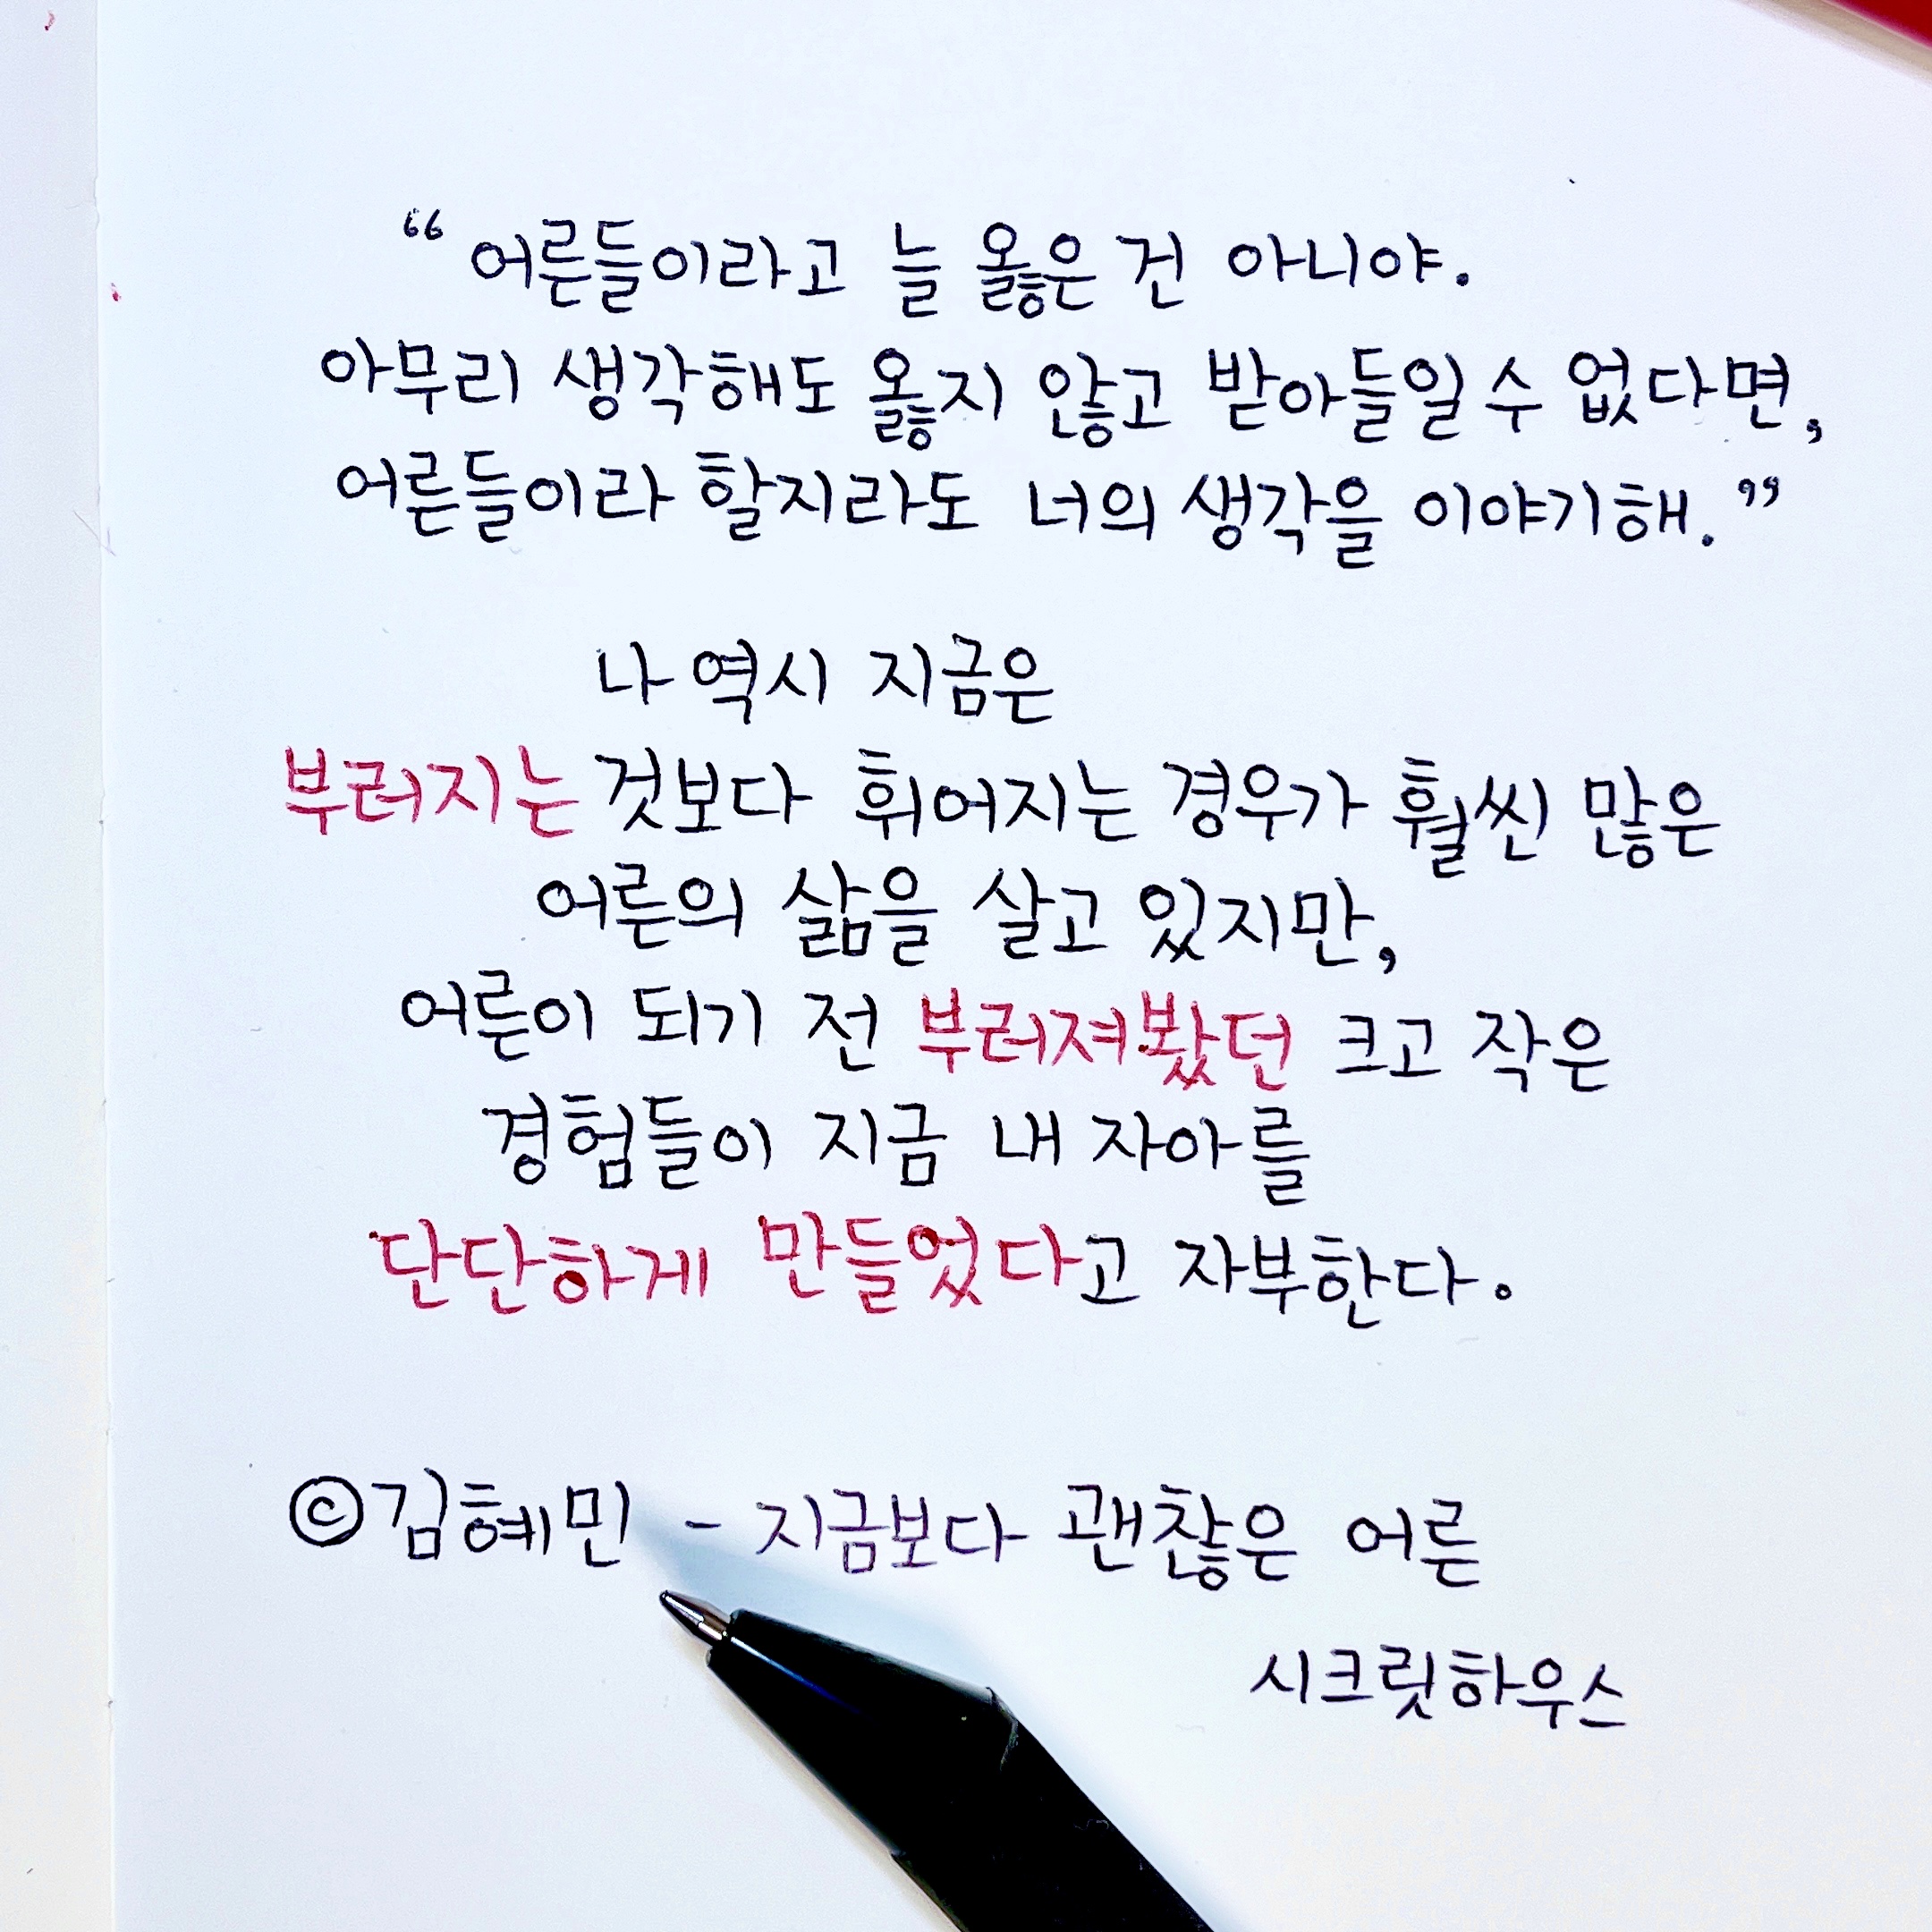 “어른들이라고 늘 옳은 건 아니야.
아무리 생각해도 옳지 않고 받아들일 수 없다면,
어른들이라 할지라도 너의 생각을 이야기해.”
나 역시 지금은
부러지는 것보다 휘어지는 경우가 훨씬 많은
어른의 삶을 살고 있지만,
어른이 되기 전 부러져봤던 크고 작은
경험들이 지금 내 자아를
단단하게 만들었다고 자부한다.
©김혜민 - 지금보다 괜찮은 어른
시크릿하우스